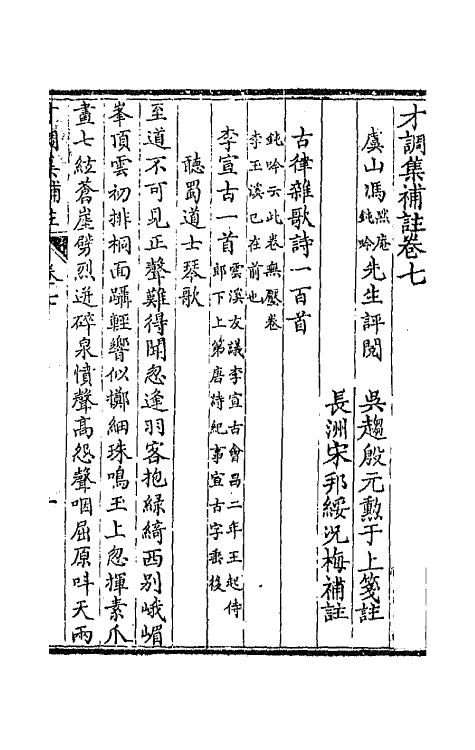 才調集補註卷七
虞山馮默庵鈍吟先生評閱
吳趨殷元勲于上箋註
長洲宋邦綏況梅補註
古律雜歌詩一百首
鈍吟云此卷無壓卷
李玉溪已在前也
李宣古一首
雲溪友議李宣古會昌二年王起侍
郎下上第唐詩紀事宣古字垂後
聽蜀道士琴歌
至道不可見正聲難得聞忽逢羽客抱緑綺西别峨嵋
峯頂雲初排桐面躡輕響似擲細珠鳴玉上忽揮素爪
畫七絃蒼崖劈烈迸碎泉憤聲高怨聲咽屈原呌天兩
才調集補註
卷七
一